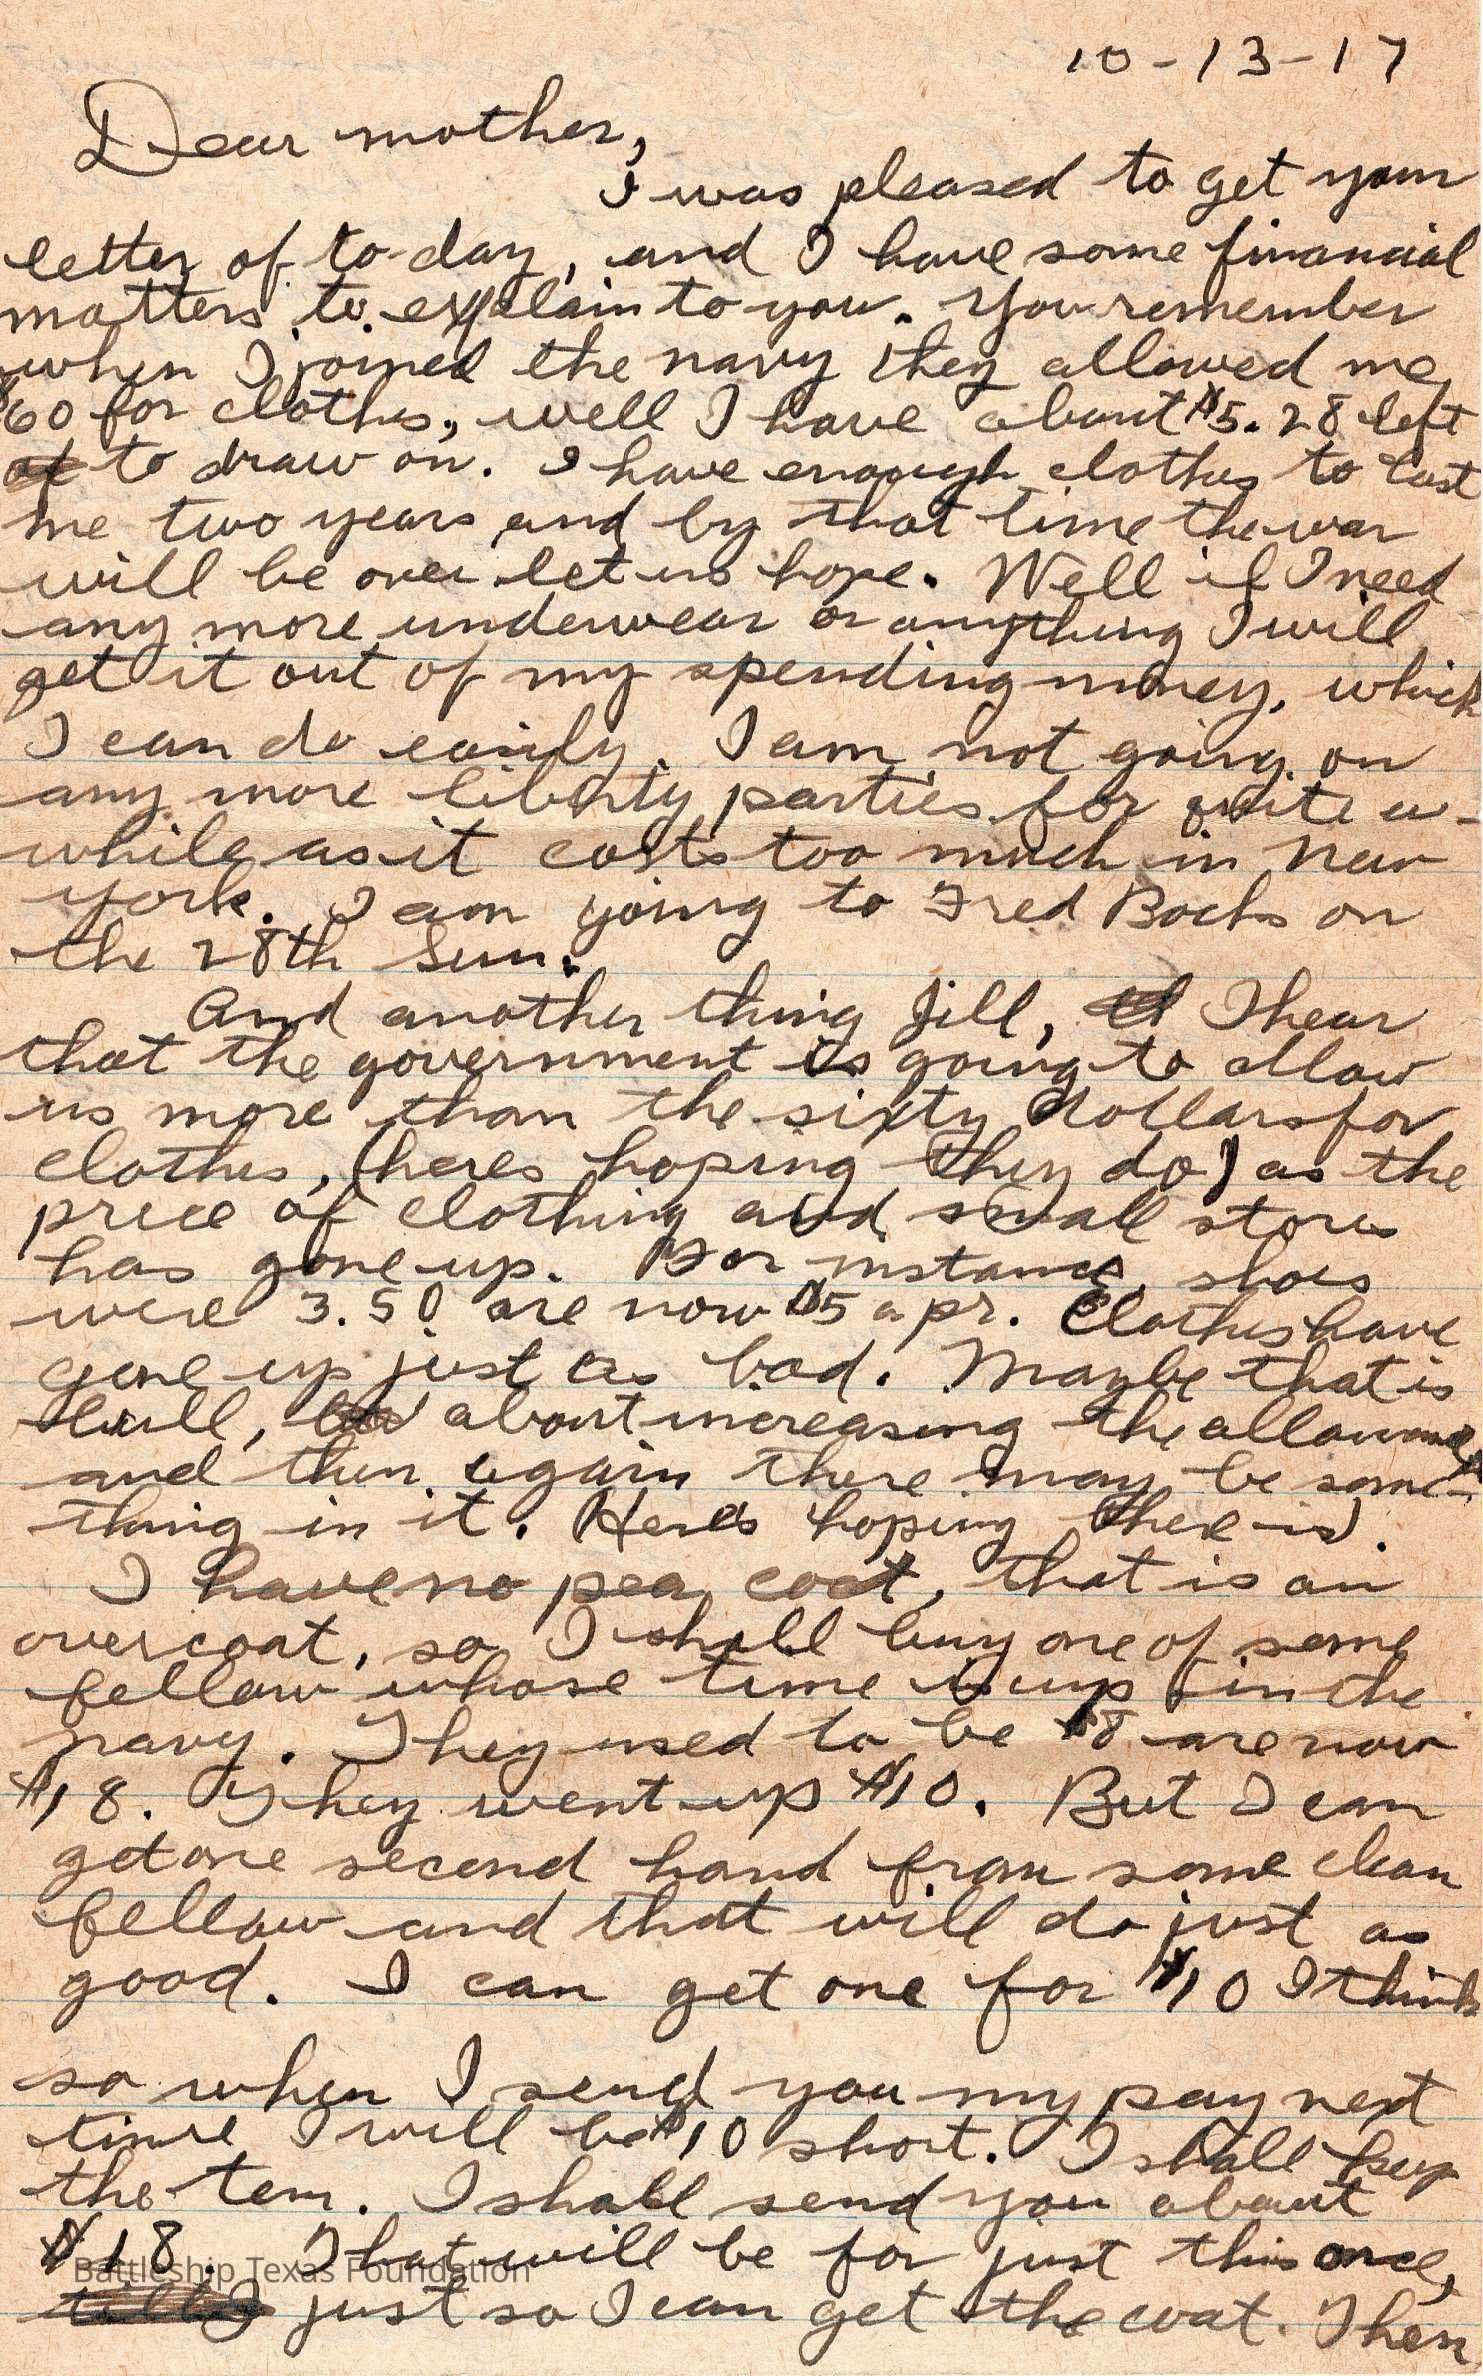 10-13-17
Dear mother,
I was pleased to get your
letter of to-day, and I have some financial
matters to explain to you. You remember
when I joined the navy they allowed me
$60 for clothes, well I have about $5.28 left
to draw on. I have enough clothes to last
me two years and by that time the war
will be over let us hope. Well if I need
any more underwear or anything I will
get it out of my spending money, which
I can do easily. I am not going on
any more liberty parties for quite a-
while as it costs too much in New
York. I am going to Fred Bochs on
the 28th Sun.
And another thing Jill, I hear
that the government is going to allow
us more than the sixty dollars for
clothes, (heres hoping they do) as the
price of clothing and small stores
has gone up. For instance, shoes
were 3.50 are now $5 a pr. Clothes have
gone up just as bad. Maybe that is
bull, about increasing the allowance
and then again there may be some-
thing in it. Heres hoping there is.
I have no pea coat, that is an
overcoat, so I shall buy one of some
fellow whose time is up in the
navy. They used to be $8 are now
$18. They went up $10. But I can
get one second hand from some clean
fellow and that will do just as
good. I can get one for $10 I think
so when I send you my pay next
time I will be $10 short. I shall keep
the ten. I shall send you about
$18. That will be for just this once,
just so I can get the coat. Then
Battleship Texas Foundation